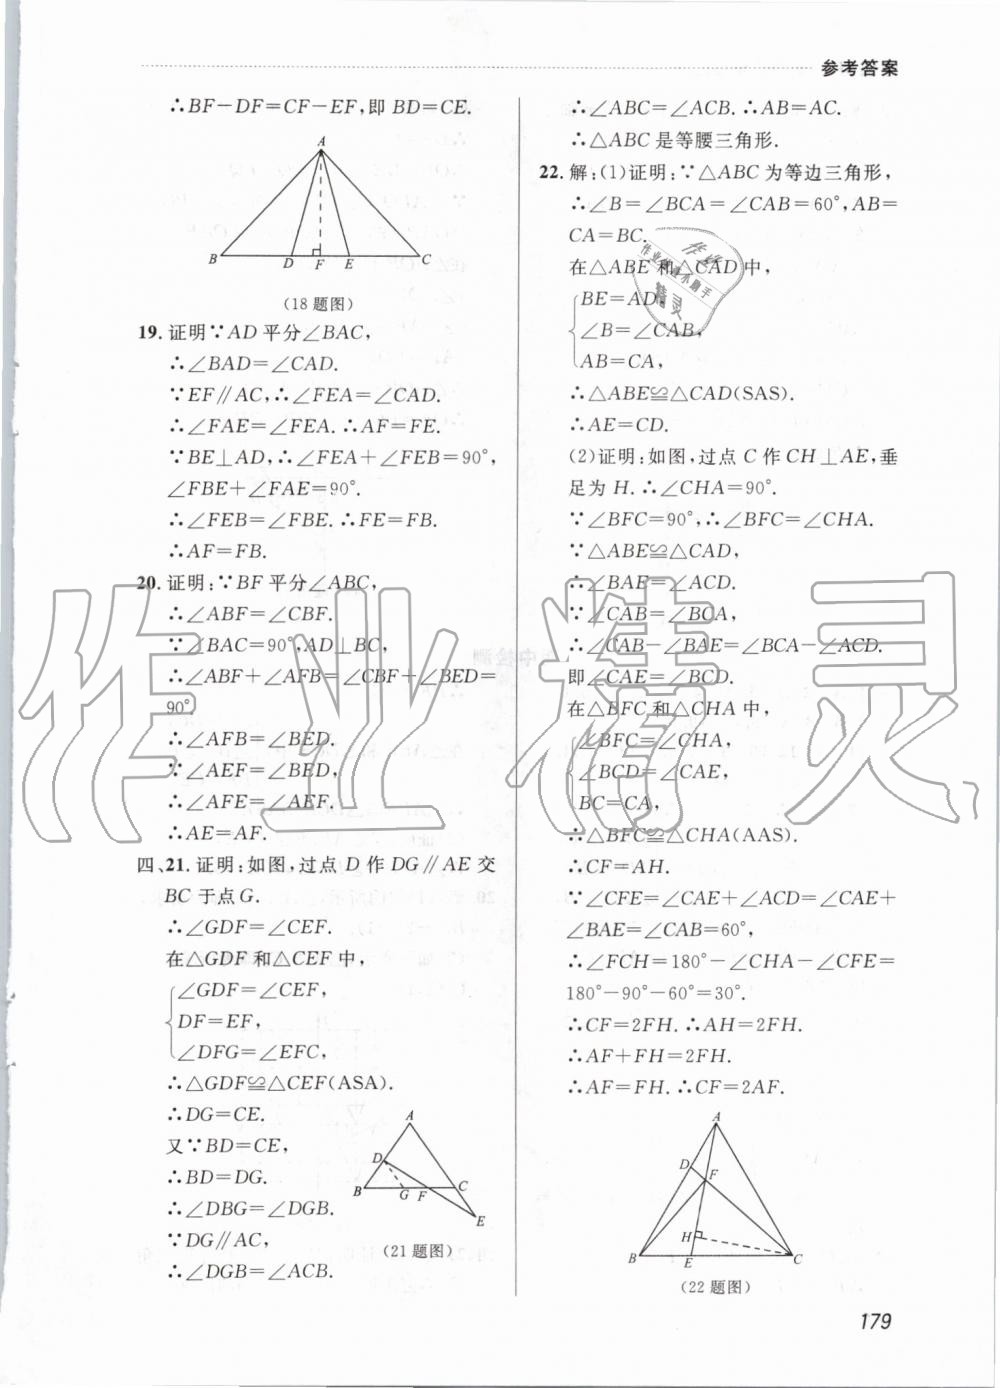 参考答案
∴BF－DF＝CF－EF,即 BD＝CE.
A
B D F E C
(18 题图)
19. 证明∵AD 平分∠BAC,
∴∠BAD＝∠CAD.
∵EF∥AC,∴∠FEA＝∠CAD.
∴∠FAE＝∠FEA.∴AF＝FE.
∵BE⊥AD,∴∠FEA＋∠FEB＝90°,
∠FBE＋∠FAE＝90°.
∴∠FEB＝∠FBE.∴FE＝FB.
∴AF＝FB.
20. 证明:∵BF 平分∠ABC,
∴∠ABF＝∠CBF.
∵∠BAC＝90°,AD⊥BC,
∴∠ABF＋∠AFB＝∠CBF＋∠BED＝
90°.
∴∠AFB＝∠BED.
∵∠AEF＝∠BED,
∴∠AFE＝∠AEF.
∴AE＝AF.
四、21. 证明:如图,过点 D 作 DG∥AE 交
BC 于点G.
∴∠GDF＝∠CEF.
在△GDF 和△CEF 中,
∠GDF＝∠CEF,
DF＝EF,
∠DFG＝∠EFC,
∴△GDF≌△CEF(ASA).
∴DG＝CE.
又∵BD＝CE,
∴BD＝DG.
∴∠DBG＝∠DGB.
∵DG∥AC,
∴∠DGB＝∠ACB.
A
D
B G F C
E
(21 题图)
∴∠ABC＝∠ACB.∴AB＝AC.
∴△ABC 是等腰三角形.
22. 解:(1)证明:∵△ABC 为等边三角形,
∴∠B＝∠BCA＝∠CAB＝60°,AB＝
CA＝BC.
在△ABE 和△CAD 中,
BE＝AD,
∠B＝∠CAB,
AB＝CA,
∴△ABE≌△CAD(SAS).
∴AE＝CD.
(2)证明:如图,过点 C 作 CH⊥AE,垂
足为 H.∴∠CHA＝90°.
∵∠BFC＝90°,∴∠BFC＝∠CHA.
∵△ABE≌△CAD,
∴∠BAE＝∠ACD.
∵∠CAB＝∠BCA,
∴∠CAB－∠BAE＝∠BCA－∠ACD.
即∠CAE＝∠BCD.
在△BFC 和△CHA 中,
∠BFC＝∠CHA,
∠BCD＝∠CAE,
BC＝CA,
∴△BFC≌△CHA(AAS).
∴CF＝AH.
∵∠CFE＝∠CAE＋∠ACD＝∠CAE＋
∠BAE＝∠CAB＝60°,
∴∠FCH＝180°－∠CHA－∠CFE＝
180°－90°－60°＝30°.
∴CF＝2FH.∴AH＝2FH.
∴AF＋FH＝2FH.
∴AF＝FH.∴CF＝2AF.
A
D F
H
B E C
(22 题图)
179
作业精灵